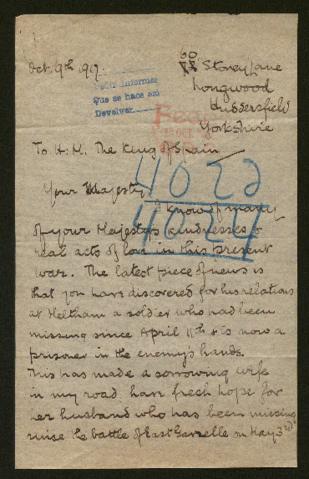 Oct 9th 1917.
60
Stoney Lane
Longwood
Huddersfield
Yorkshire
Pedir informes
Que se haca en
Devolver
To H. M. The King of Spain
4022
4021
Your Majesty,
I know of many
of your Majesty's kindnesses &
real acts of love in this present
war. The latest piece of news is
that you have discovered for his relations
at Meltham a soldier who had been
missing since April 11th & is now a
prisoner in the enemy's hands.
This has made a sorrowing wife
in my road have fresh hope for
her husband who has been missing
since the battle of East on May 3rd